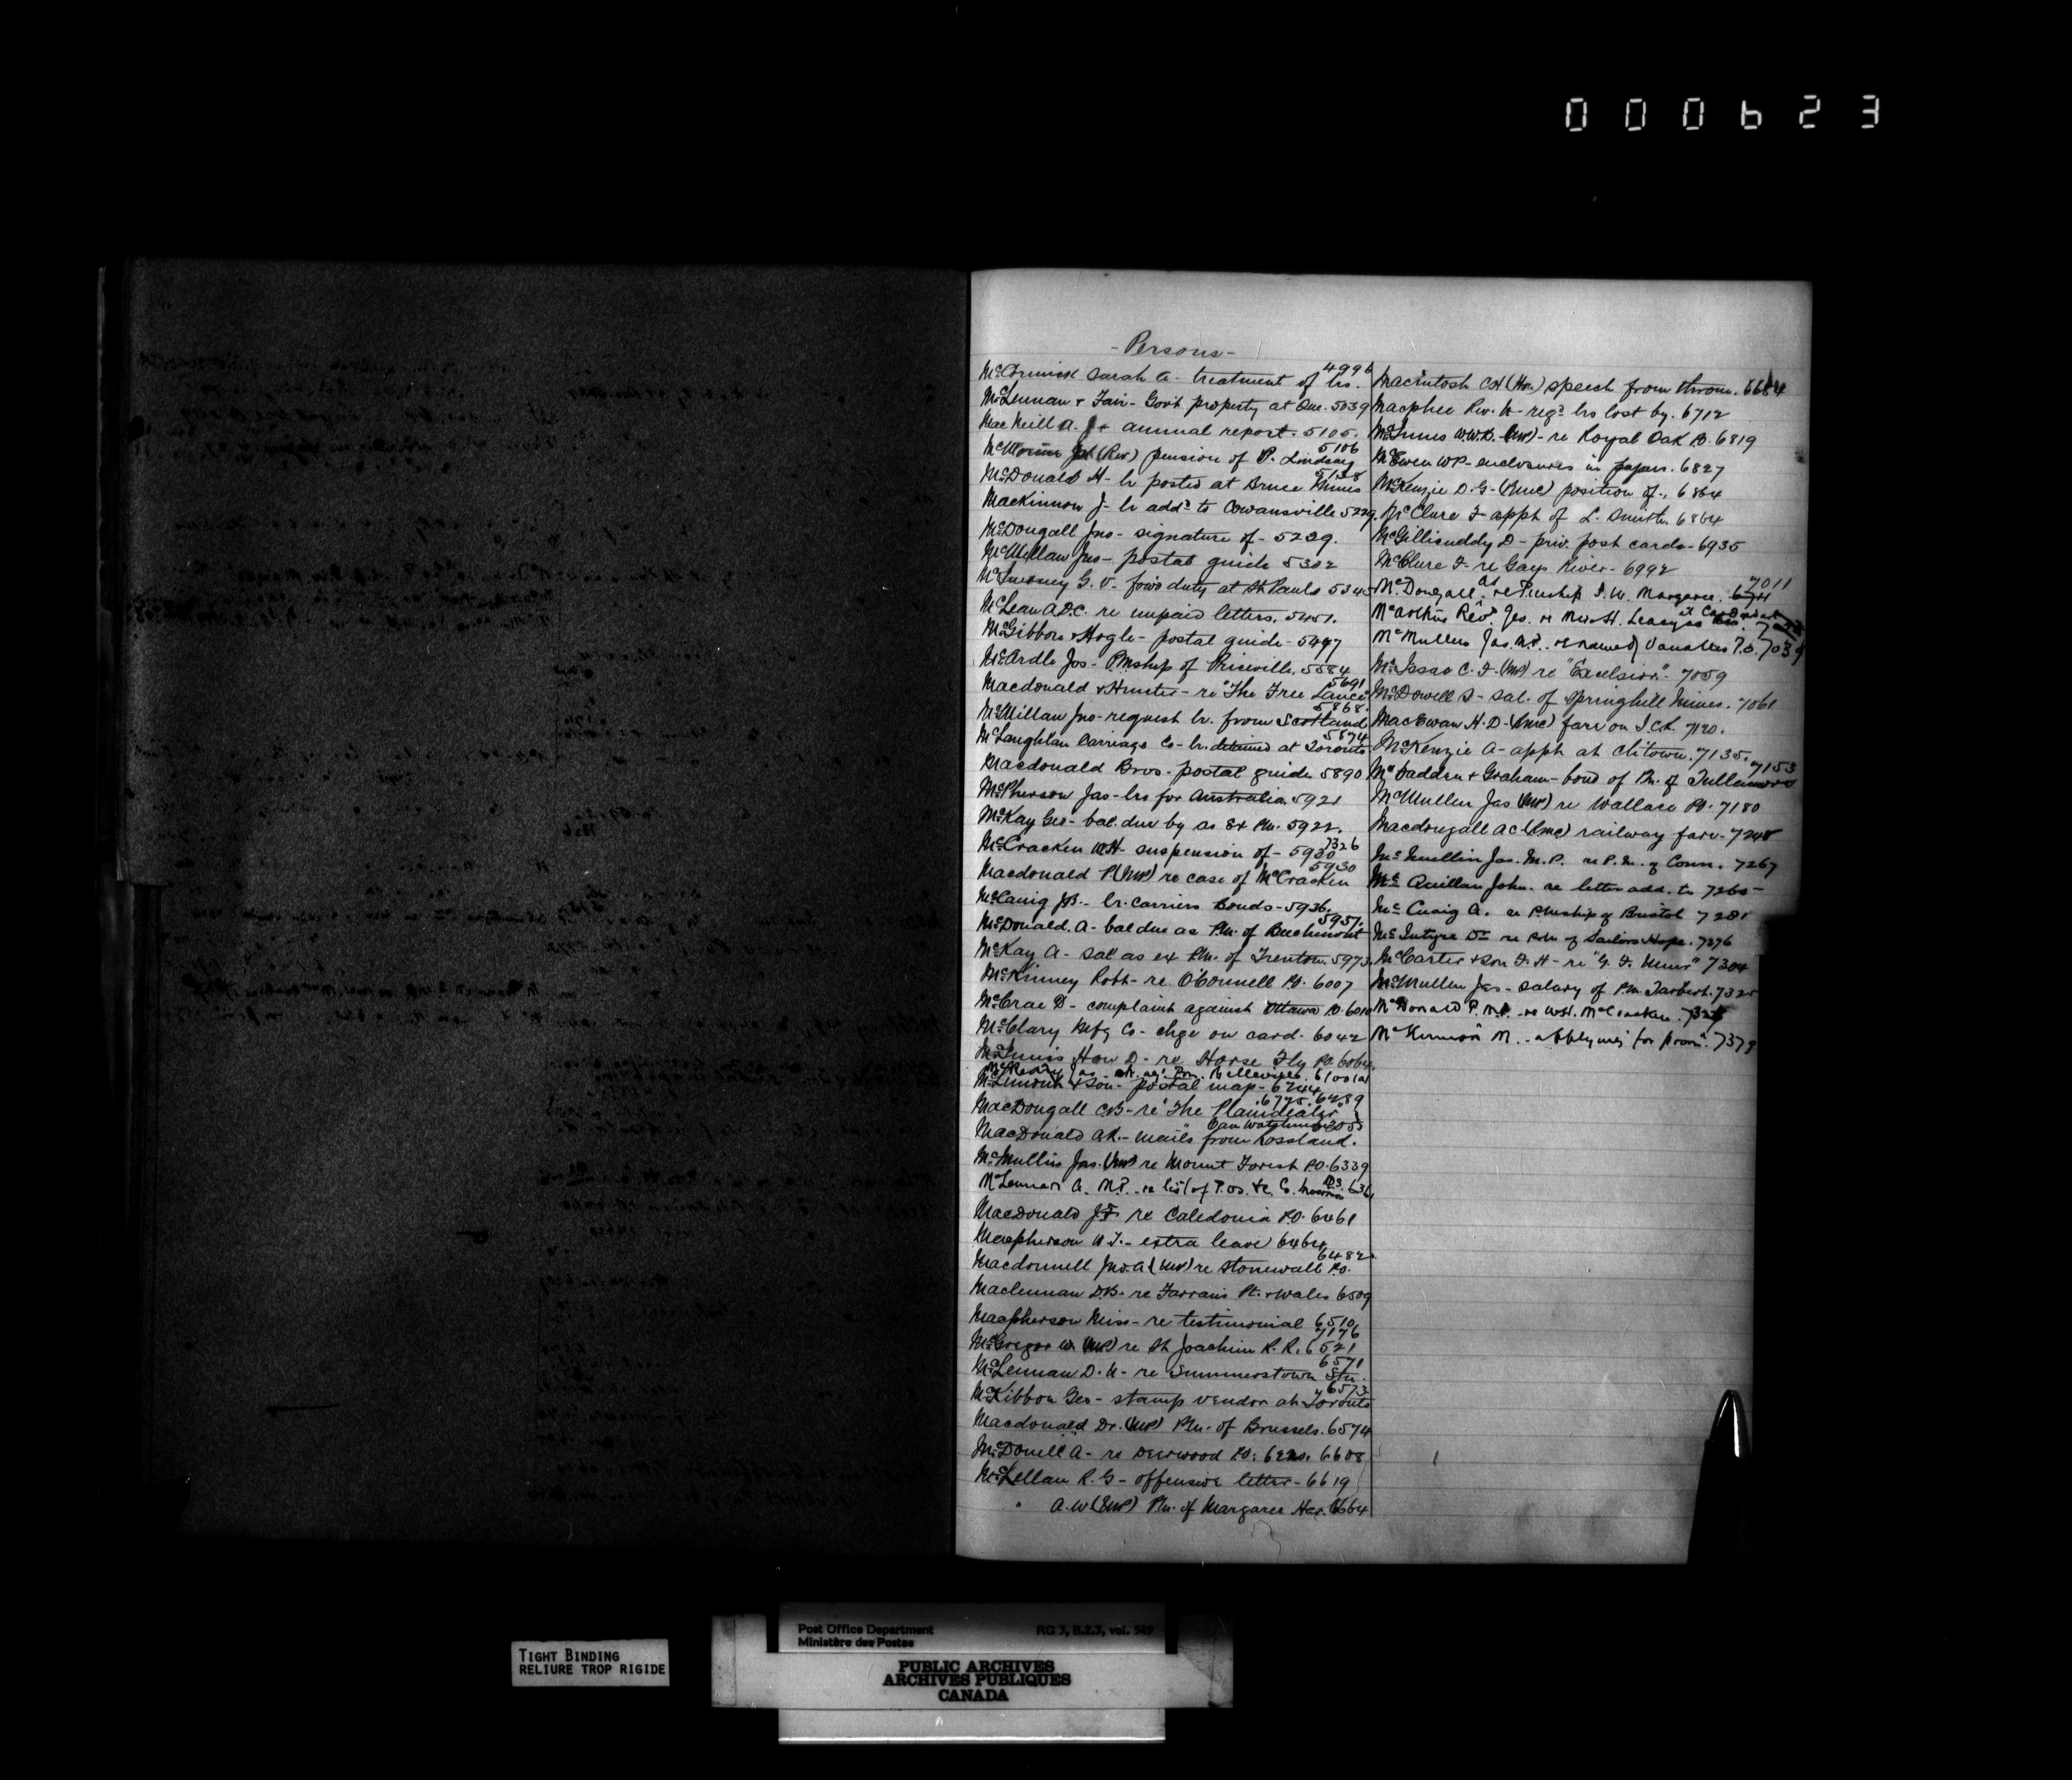 000623
- Persons -
McCormick Sarah A - treatment of lrs. 4996
McLennan & Fair - Govt property at Que. 5039
MacNeill A. J + annual report. 5105.
(Rev) pension of P. Lindsay 5106
McDonald H - lr posted at Bruce Mines 5138
MacKinnon J - lr addd to Cowansville 5229.
McDougall Jno - signature of - 5229.
McMillan Jno - postal guide 5302
G. V. - forwd duty at St Pauls 5345
McLean A.D.C. re unpaid letters. 5451.
McGibbon & Hogle - postal guide - 5497
McArdle Jos - Pmship of Priceville. 5584
Macdonald & Hunter - re "The Free Lance" 5691
McMillan Jno - request lr. from Scotland 5868.
McLaughlan Carriage Co - lr. detained at Toronto 5874
Macdonald Bros. postal guide 5890
McPherson Jas - lrs for Australia 5921
McKay Geo - bal. due by as Ex Pm. 5922.
McCracken W.H - suspension of - 5930 7326
Macdonald P (MP) re case of McCracken 5930
McCaig J.B. - lr. carriers bonds - 5936.
McDonald. A - bal due as Pm. of Beechmont 5957.
McKay A - sal as ex Pm. of Trenton 5973.
McKinney Robt - re O'Connell PO. 6007
McCrae D - complaint against Ottawa PO. 6010
McClary Mfg Co - chge on card. 6042
McInnis Hon D - re Horse Fly PO. 6064.
McCready Jas. agt Pm. Belleville. 6100
& Son - postal map - 6244
MacDougall C.B - re "The Plaindealer" 6775. 6289
Can Watchman 6305
MacDonald A.R. - mails from Rossland.
McMullin Jas. (MP) re Mount Forest P.O. 6339
McLennan A. M.P. re list of P.Os. &c. G.
MacDonald J.F. re Caledonia P.O. 6461
Macpherson W.T. - extra leave 6464
Macdonnell Jno. A (MP) re Stonewall P.O. 6482.
Maclennan D.B. re Farrans Pt. & Wales 6509
Macpherson Miss - re testimonial 6510
McGregor W. (MP) re St Joachim R.R. 6521 7176
McLennan D. W - re Summerstown Stn. 6571
McKibbon Geo - stamp vendor at Toronto 6573
Macdonald Dr. (MP) Pm. of Brussels. 6574
McDonell A - re Deerwood PO: 6608
McLellan R. G - offensive letter - 6619
" A.W (ExMP) Pm. of Margaree Har. 6664
Macintosh CH (Hon) speech from throne. 6684
Macphee Rev. W - regd lrs lost by. 6712
McInnes W.W.B. (MP) - re Royal Oak PO. 6819
McEwen WP - enclosures in papers. 6827
McKenzie D. G - (RMC) position of., 6864
McClure F - appt of L. Smith. 6864
McGillicuddy D - priv. post cards - 6935
McClure F - re Gays River - 6992
McDougall re Pmship S. W. Margaree. 7011
McArthur Revd Geo. re
McMullen Jas. M.P. re name Vanatter P.O. 7039
McIsaac C. F. (MP) re "Excelsior". 7059
McDowell S - sal. of Springhill Mines. 7061
MacEwan H. D - (RMC) fare on I.C.R. 7120.
McKenzie A - appt at Chtown. 7135.
McFadden & Graham - bond of Pm. of Tullamore 7153
McMullen Jas (MP) re Wallace PO. 7180
Macdougall AC (RMC) railway fare - 7248
McMullin Jas. M.P. re P.M. of Conn. 7267
McQuillan John. re letter add. to 7265
McCuaig A. re Pmship of Bristol 7281
McIntyre Dr re P.M. of Sailors Hope. 7296
McCarter & Son F. H - re "G. F. News" 7304
McMullen Jas - salary of P.M. Tarbert. 7325
McDonald P. M.P. re W.H. McCracken. 7326
McKinnon M. - applying for prom. 7379
TIGHT BINDING
RELIURE TROP RIGIDE
Post Office Department
Ministère des Postes
RG 3, B.2.3, vol. 549
PUBLIC ARCHIVES
ARCHIVES PUBLIQUES
CANADA